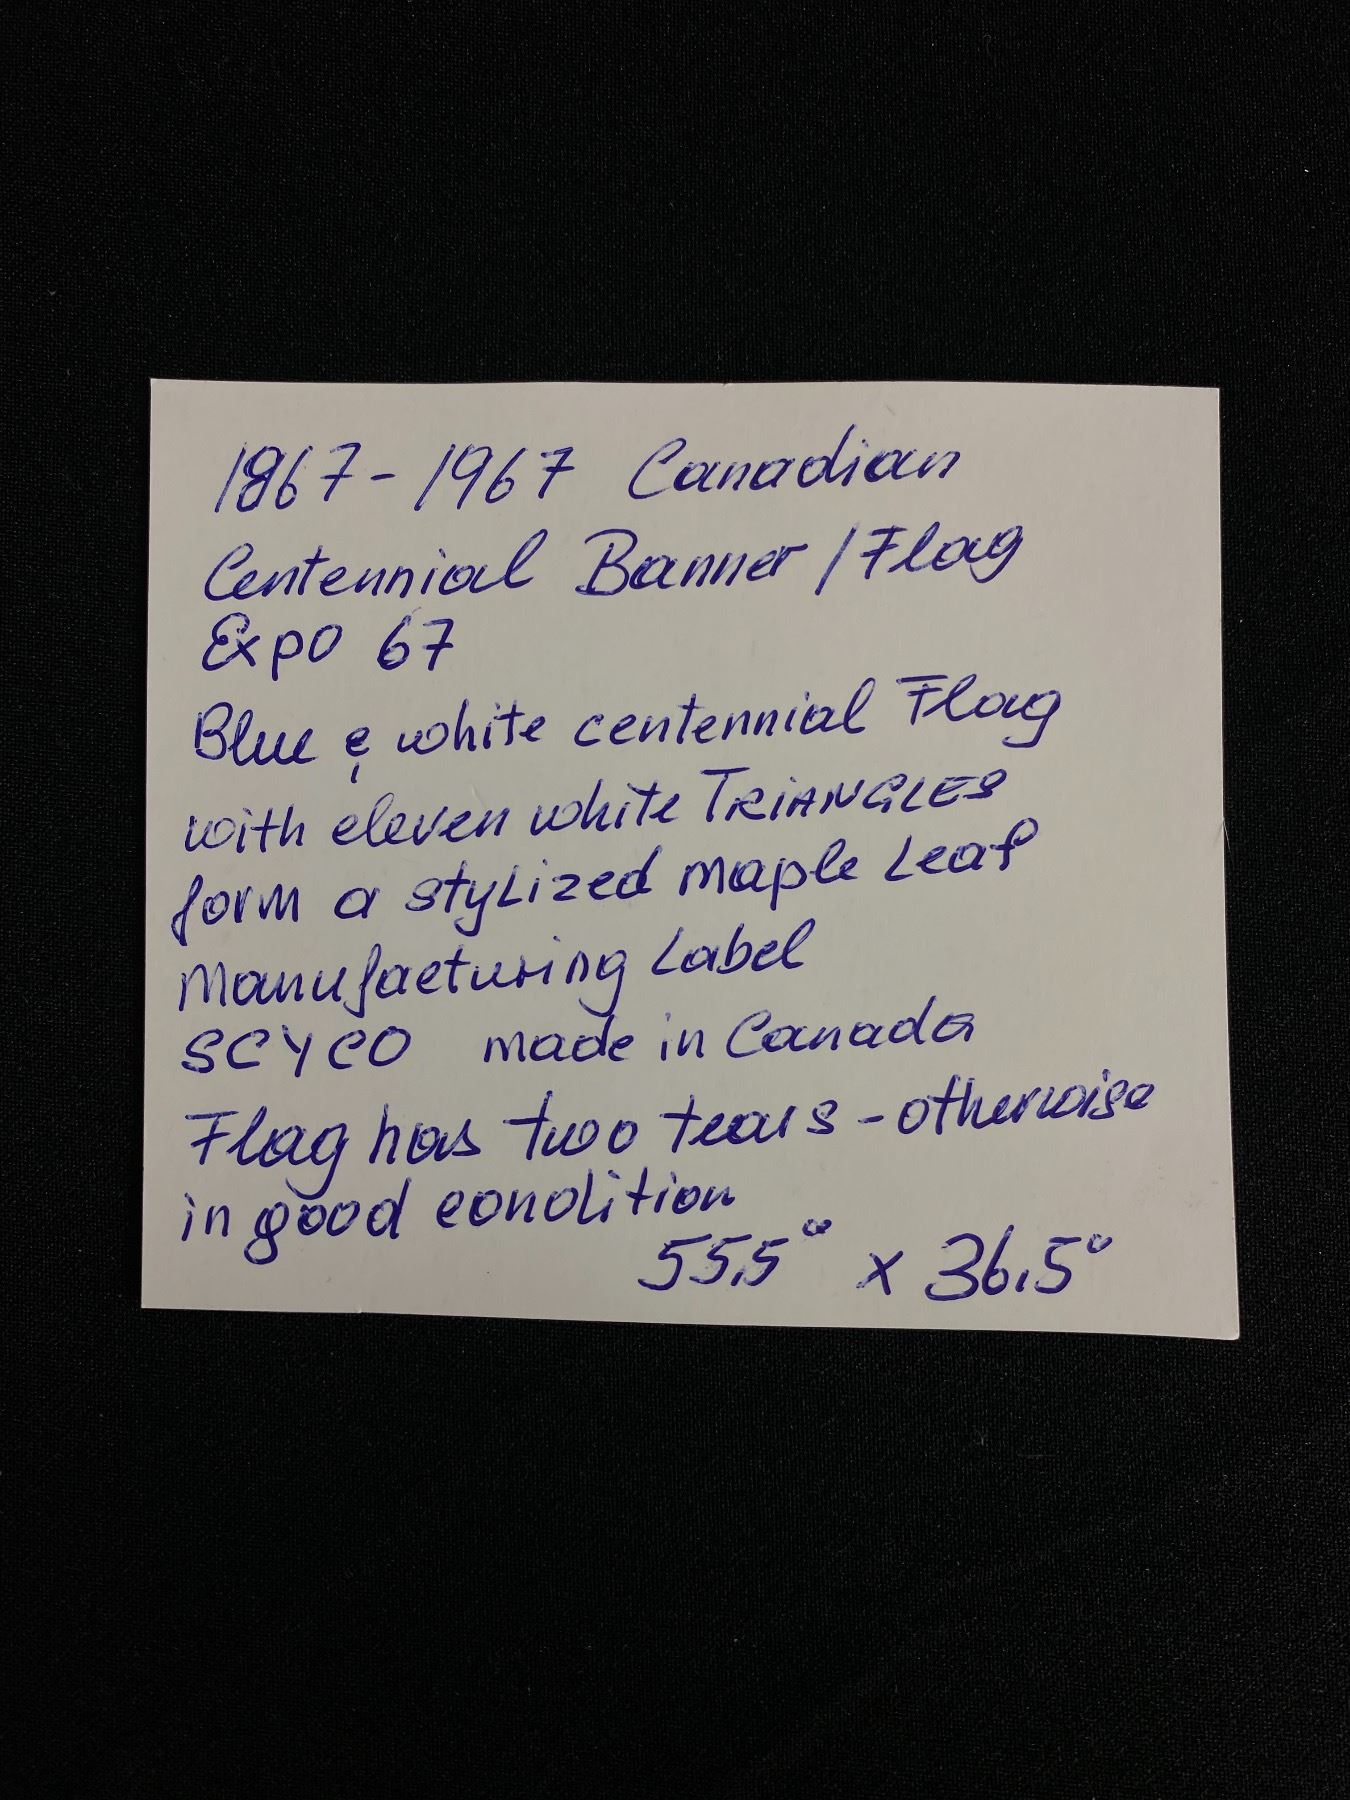 1867-1967 Canadian
Centennial Banner/Flag
Expo 67
Blue & white centennial Flag
with eleven white TRIANGLES
form a stylized maple Leaf
Manufacturing Label
SCYCO made in Canada
Flag has two tears - otherwise
in good condition
55,5° x 36.5°